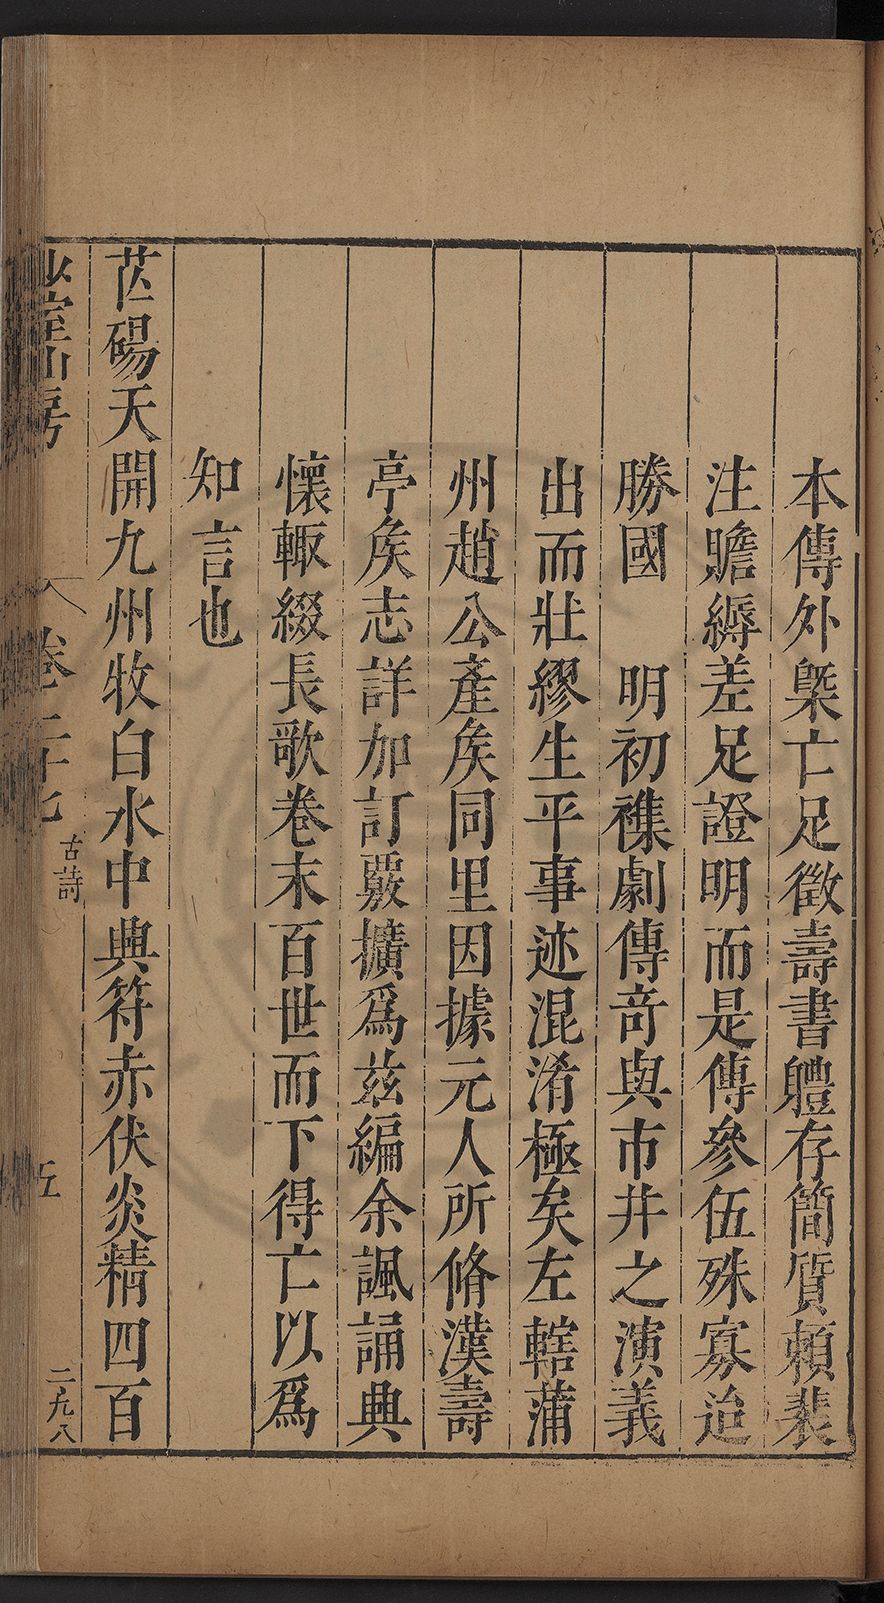 本傳外槩亡足徵壽書體存簡質賴裴
注贍縟差足證明而是傳參伍殊寡迨
勝國　明初襍劇傳竒與市井之演義
出而壯繆生平事迹混淆極矣左轄蒲
州趙公產矦同里因據元人所脩漢壽
亭矦志詳加訂覈擴爲兹編余諷誦典
懷輙綴長歌卷末百世而下得亡以爲
知言也
芒碭天開九州牧白水中興符赤伏炎精四百
少室山房
卷二十七
古詩
五
二九八